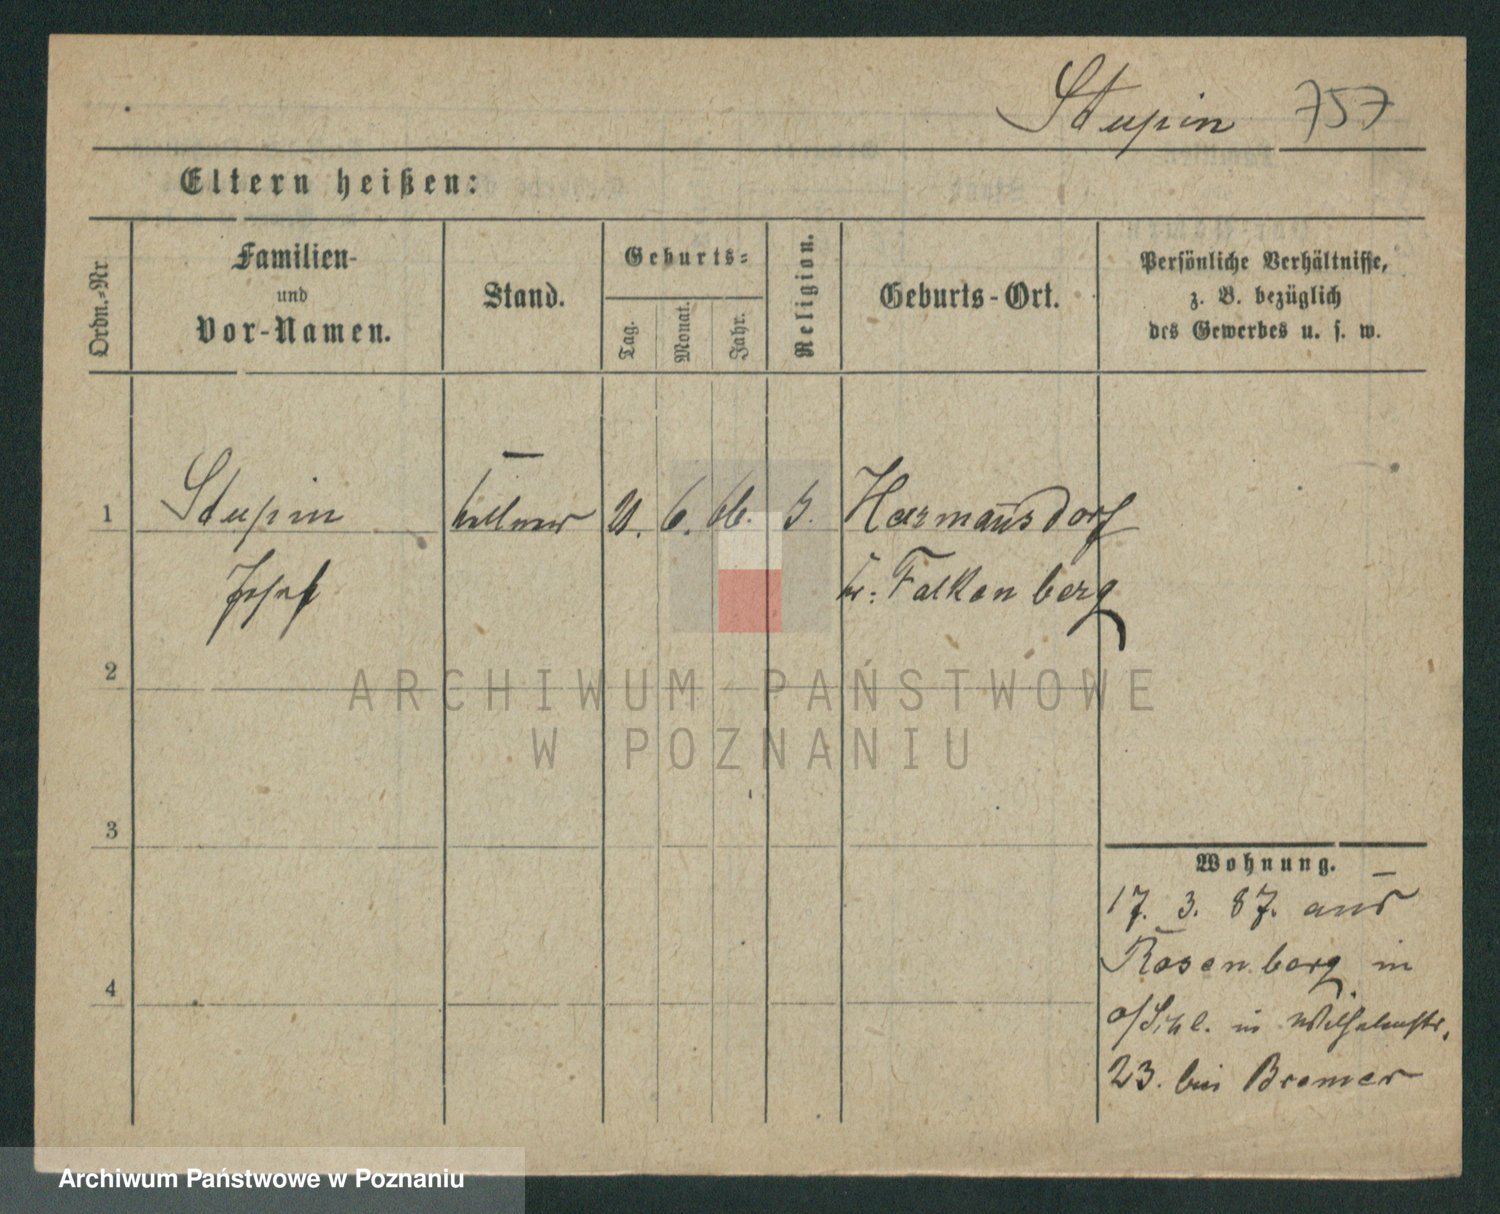 Stupin 757
Eltern heißen:
Ordn.-Nr.
Familien-
und
Vor-Namen.
Stand.
Geburts-
Tag.
Monat.
Jahr.
Religion.
Geburts-Ort.
Persönliche Verhältnisse,
z. B. bezüglich
des Gewerbes u. s. w.
1 Stupin Kellner 6. Hermansdorf
Josef Kr. Falkenberg
2
ARCHIWUM PAŃSTWOWE
W POZNANIU
3
Wohnung.
17. 3. 87. aus
Rosenberg in
4
o/Schl. in Wilhelmstr.
23. bei Bremer
Archiwum Państwowe w Poznaniu